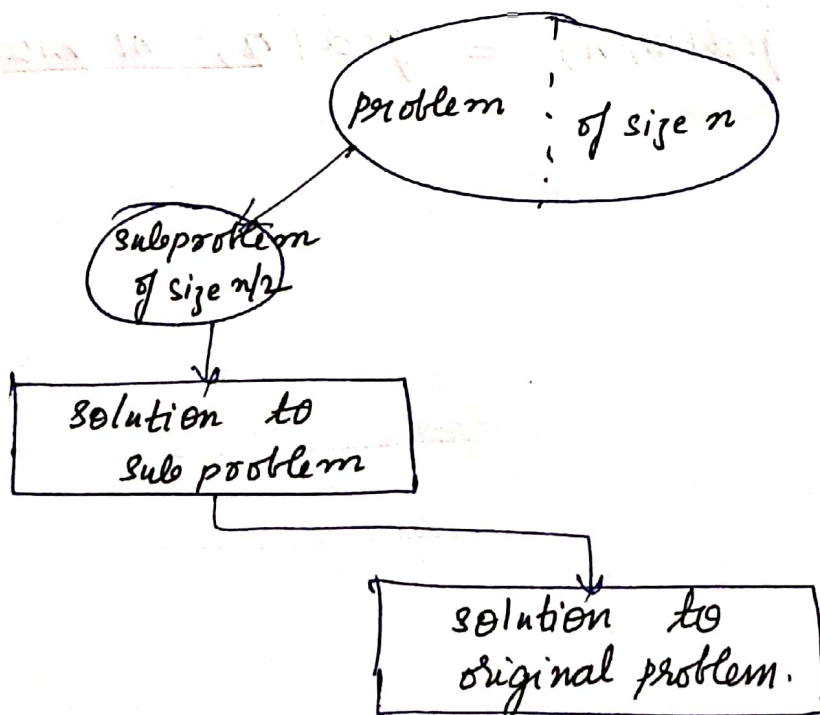 problem of size n
subproblem
of size n/2
solution to
sub problem
solution to
original problem.